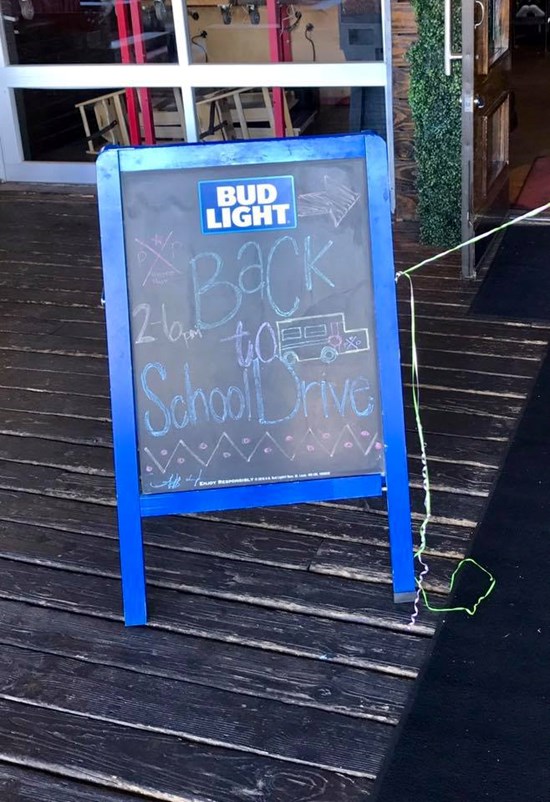 BUD
LIGHT
BaCK
2-6pm
to
School Drive
ENJOY RESPONSIBLY